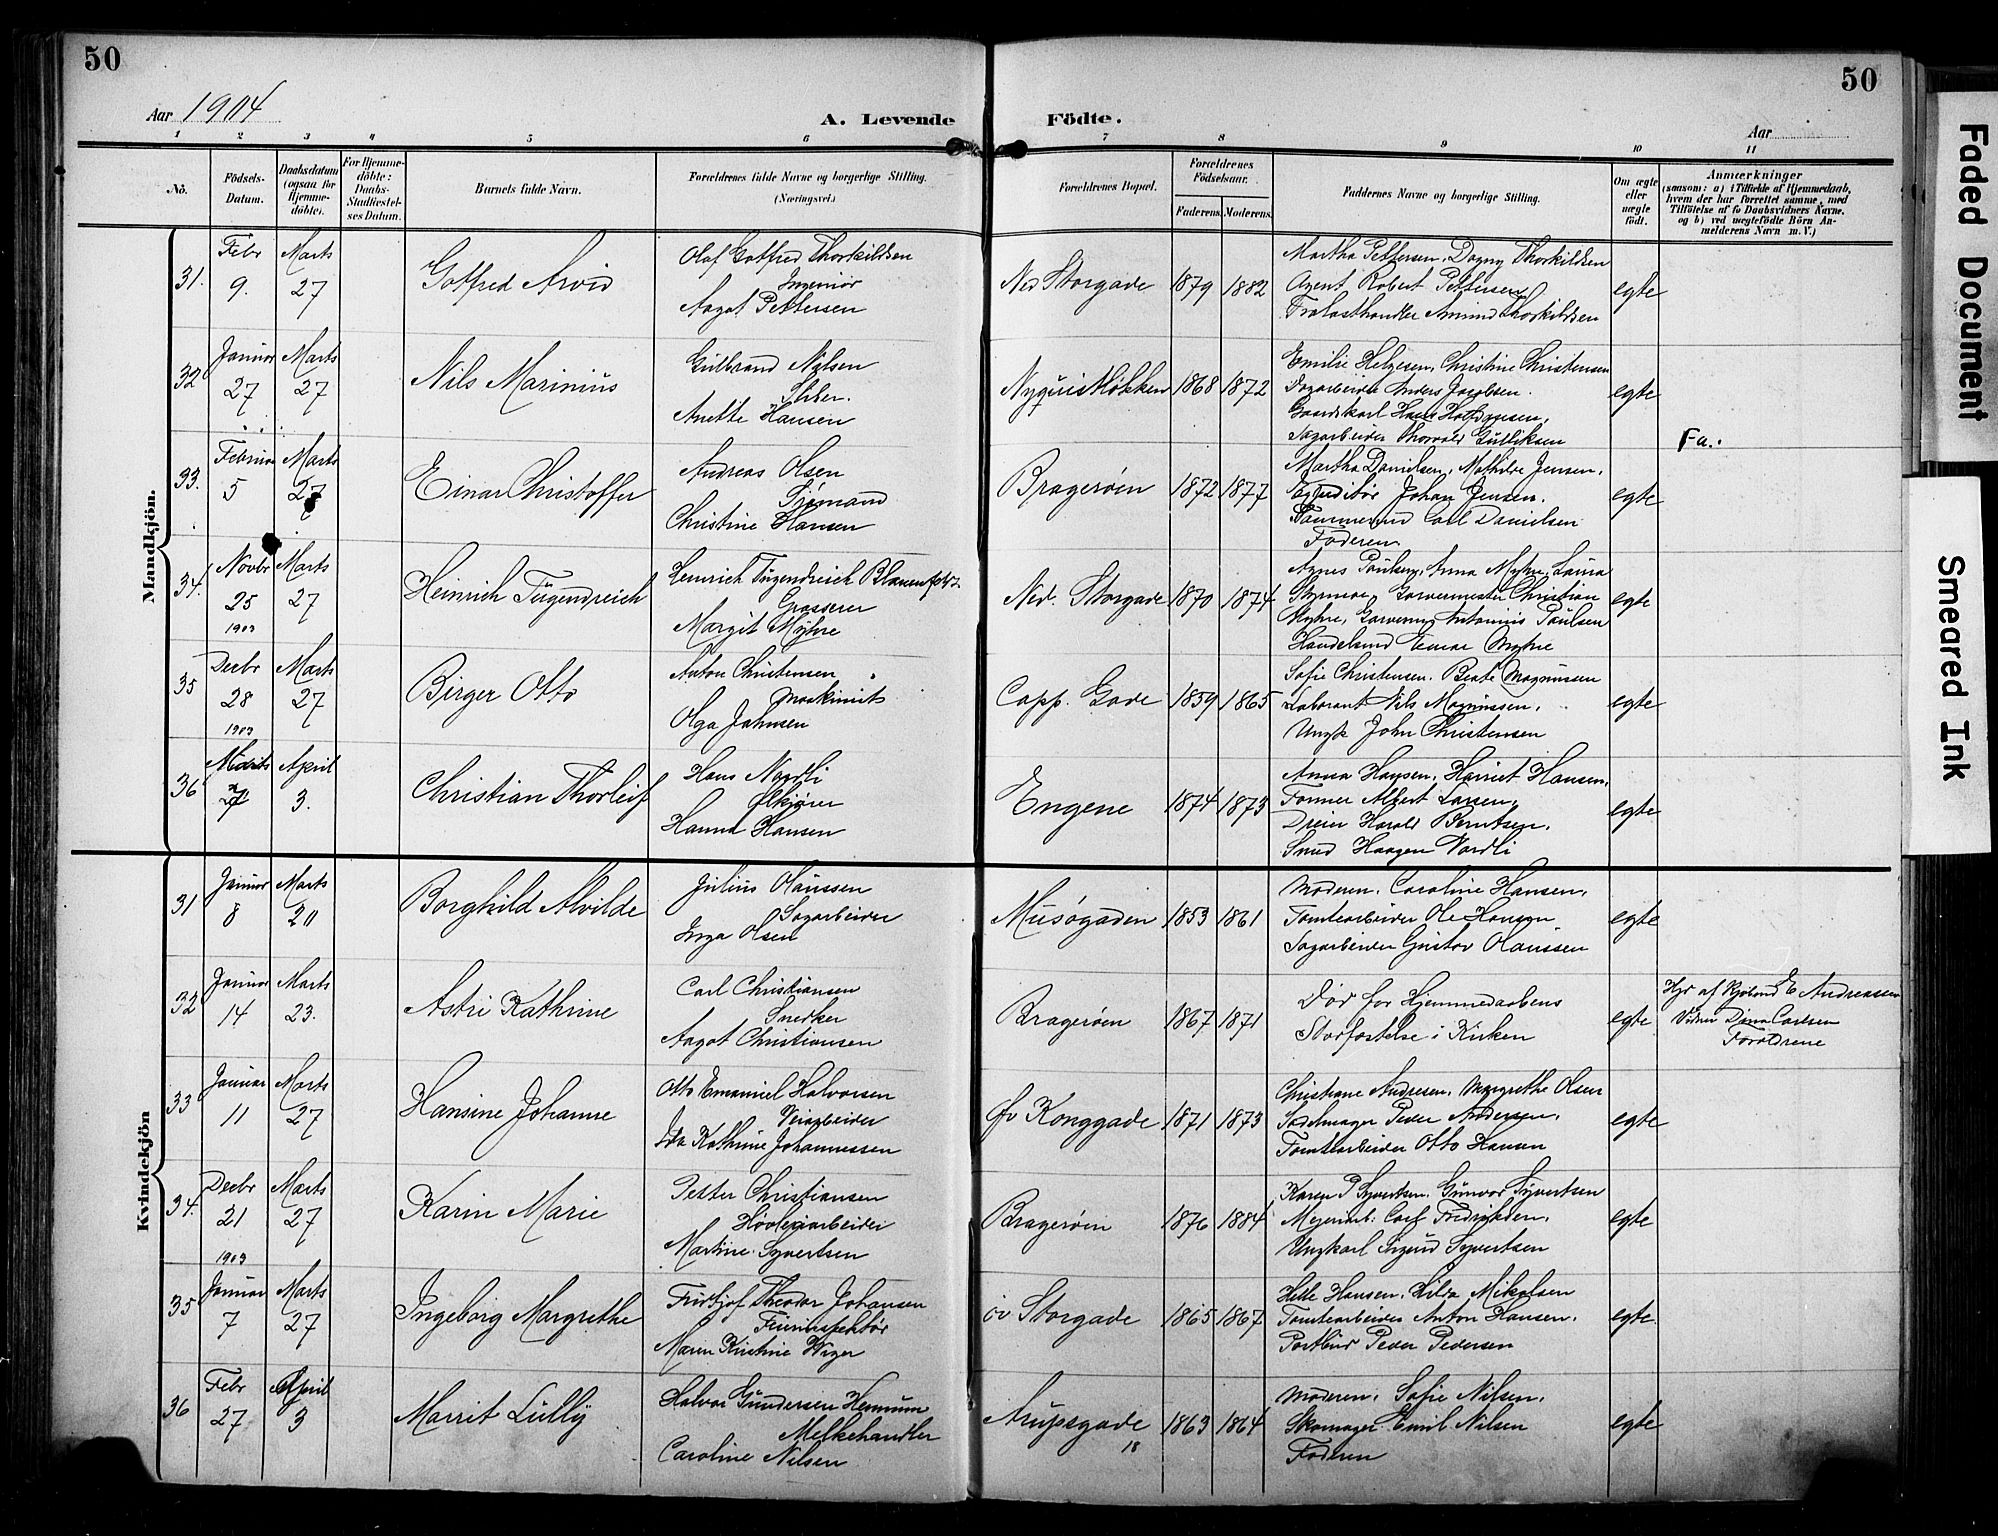 50
50
Aar 1904
A. Levende Födte.
Aar
1 2 3 4 5 6 7 8 9 10 11
No.
Födsels-
Datum.
Daabsdatum
(ogsaa for
Hjemme-
döbte).
For Hjemme-
döbte:
Daabs-
Stadfæstel-
ses Datum.
Barnets fulde Navn.
Forældrenes fulde Navne og borgerlige Stilling.
(Næringsvei.)
Forældrenes Bopæl.
Forældrenes
Födselsaar.
Faderens. Moderens.
Faddernes Navne og borgerlige Stilling.
Om ægte
eller
uægte
födt.
Anmærkninger
(saasom: a) i Tilfælde af Hjemmedaab,
hvem der har forrettet samme, med
Tilföielse af to Daabsvidners Navne,
og b) ved uægtefödte Börn An-
melderens Navn m. V.)
Mandkjön.
31.
Febr
9.
Marts
27
Gotfred Arvid
Olaf Gotfred Thorkildsen
Ingeniør
Aagot Pettersen
Ned Storgade
1879 1882
Martha Pettersen, Dagny Thorkildsen
Agent Robert Pettersen
Trælasthandler Amund Thorkildsen
egte
32
Januar
27
Marts
27
Nils Marinius
Gulbrand Nilsen
Sliber.
Anette Hansen
1868 1872
Emilie Helgesen, Christine Christensen
Dagarbeider Anders Jacobsen.
Gaardskarl Hans
Sagarbeider Thorvald Gulliksen
egte
33.
Februar
5
Marts
27
Einar Christoffer
Andreas Olsen
Sjømand
Christine Hansen
Bragerøen
1872 1877
Martha Danielsen, Mathilde Jensen,
Expeditør Johan Jensen.
Tømmermd Carl Danielsen
Faderen
egte
Fa.
34.
Novbr
25
1903
Marts
27
Heinrich Tugendreich
Heinrich Tugendreich
Grosserer
Margit Myhre
Ned. Storgade
1870 1874
Agnes Paulsen, Anna Myhre, Laura
Garvermester Christian
Myhre, Antonius Paulsen
Handelsmd Myhre
egte
35
Decbr
28
1903
Marts
27
Birger Otto
Anton Christensen
Maskinist
Olga Johnsen
Capp. Gade
1859 1865
Sofie Christensen. Beate Magnussen
Laborant Nils Magnussen,
Ungk John Christensen
egte
36
Marts
April
3.
Christian Thorleif
Hans Nordli
Ølkjører
Hanna Hansen
Engene
1874 1873
Anna Hansen, Harriet Hansen,
Former Albert Larsen,
Dreier Harald Berntsen.
Smed Haagen Nordli
egte
Kvindekjön
31
Januar
8
Marts
20
Borghild Alvilde
Julius Olaussen
Sagarbeider
Inga Olsen
Musøgaden
1853 1861
Moderen, Caroline Hansen,
Tomtearbeider Ole Hansen
Sagarbeider Gustav Olaussen
egte
32
Januar
14
Marts
23.
Astri Kathrine
Carl Christiansen
Snedker
Aagot Christiansen
Bragerøen
1867 1871
Død før Hjemmedaabens
Stadfæstelse i Kirken
egte
Hjd af Kjøbmd E Andreassen
Vidner Dina Carlsen
Forældrene
33
Januar
11
Marts
27
Hansine Johanne
Otto Emanuel Halvorsen
Veiarbeider
Ida Kathrine Johannessen
Øv Konggade
1871 1873
Christiane Andresen, Margrethe Olsen
Sadelmager Peder Andersen,
Tomtearbeider Otto Hansen
egte
34.
Decbr
21
1903
Marts
27
Karin Marie
Petter Christiansen
Høvleriarbeider
Martine Syvertsen
Bragerøen
1876 1884
Karen P Syvertsen, Gunvor Syvertsen
Meieriarb. Carl Fredriksen,
Ungkarl Sigurd Syvertsen
egte
35
Januar
7
Marts
27
Ingeborg Margrethe
Fridtjof Theodor Johansen
Maren Kirstine Wiger
öv Storgade
1865 1867
Helle Hansen, Hilda Mikalsen
Tomtearbeider Anton Hansen,
Postbud Peder Pedersen
egte
36
Febr
27
April
3
Marrit Lully
Halvor Gundersen Hennum
Melkehandler
Caroline Nilsen
Arupsgade
18
1863 1864
Moderen, Sofie Nilsen,
Skomager Emil Nilsen
Faderen
egte
Faded Document
Smeared Ink